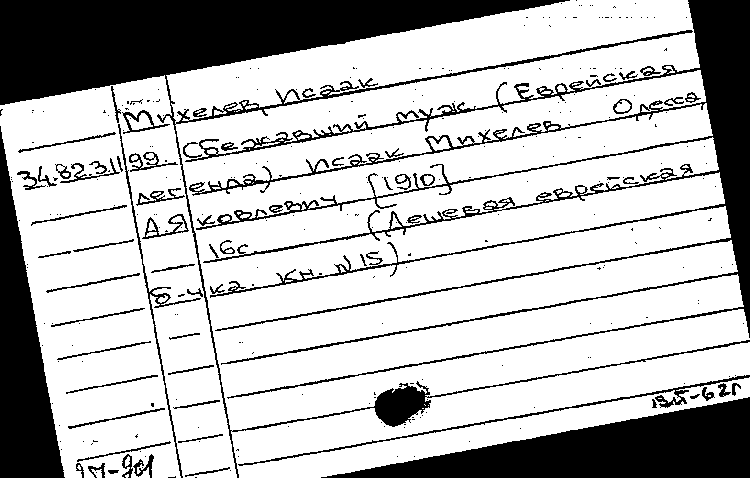 Михелев, Исаак
34.82.3.1199. Сбежавший муж (Еврейская
легенда). Исаак Михелев. Одесса,
А. Яковлевич, [1910]
16с. (Дешевая еврейская
б-чка. Кн. N 15).